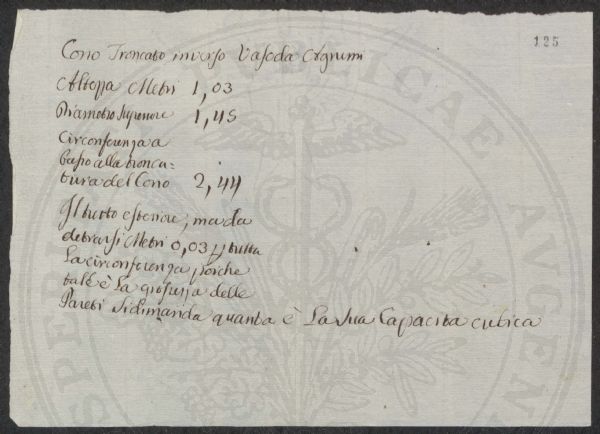 125
Cono Troncato inverso Vaso da Agrumi
Altezza Metri 1,03
Diametro Superiore 1,45
Circonferenza a
basso alla tronca=
tura del Cono 2,44
Il tutto esteriore; ma da
detrarsi Metri 0,03 p tutta
La circonferenza poiche
tale è La grossezza delle
Pareti si dimanda quanta è La sua Capacita cubica